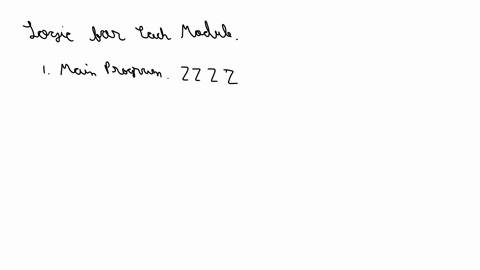 Logic for Each Module.
1. Main Program. Z Z Z Z